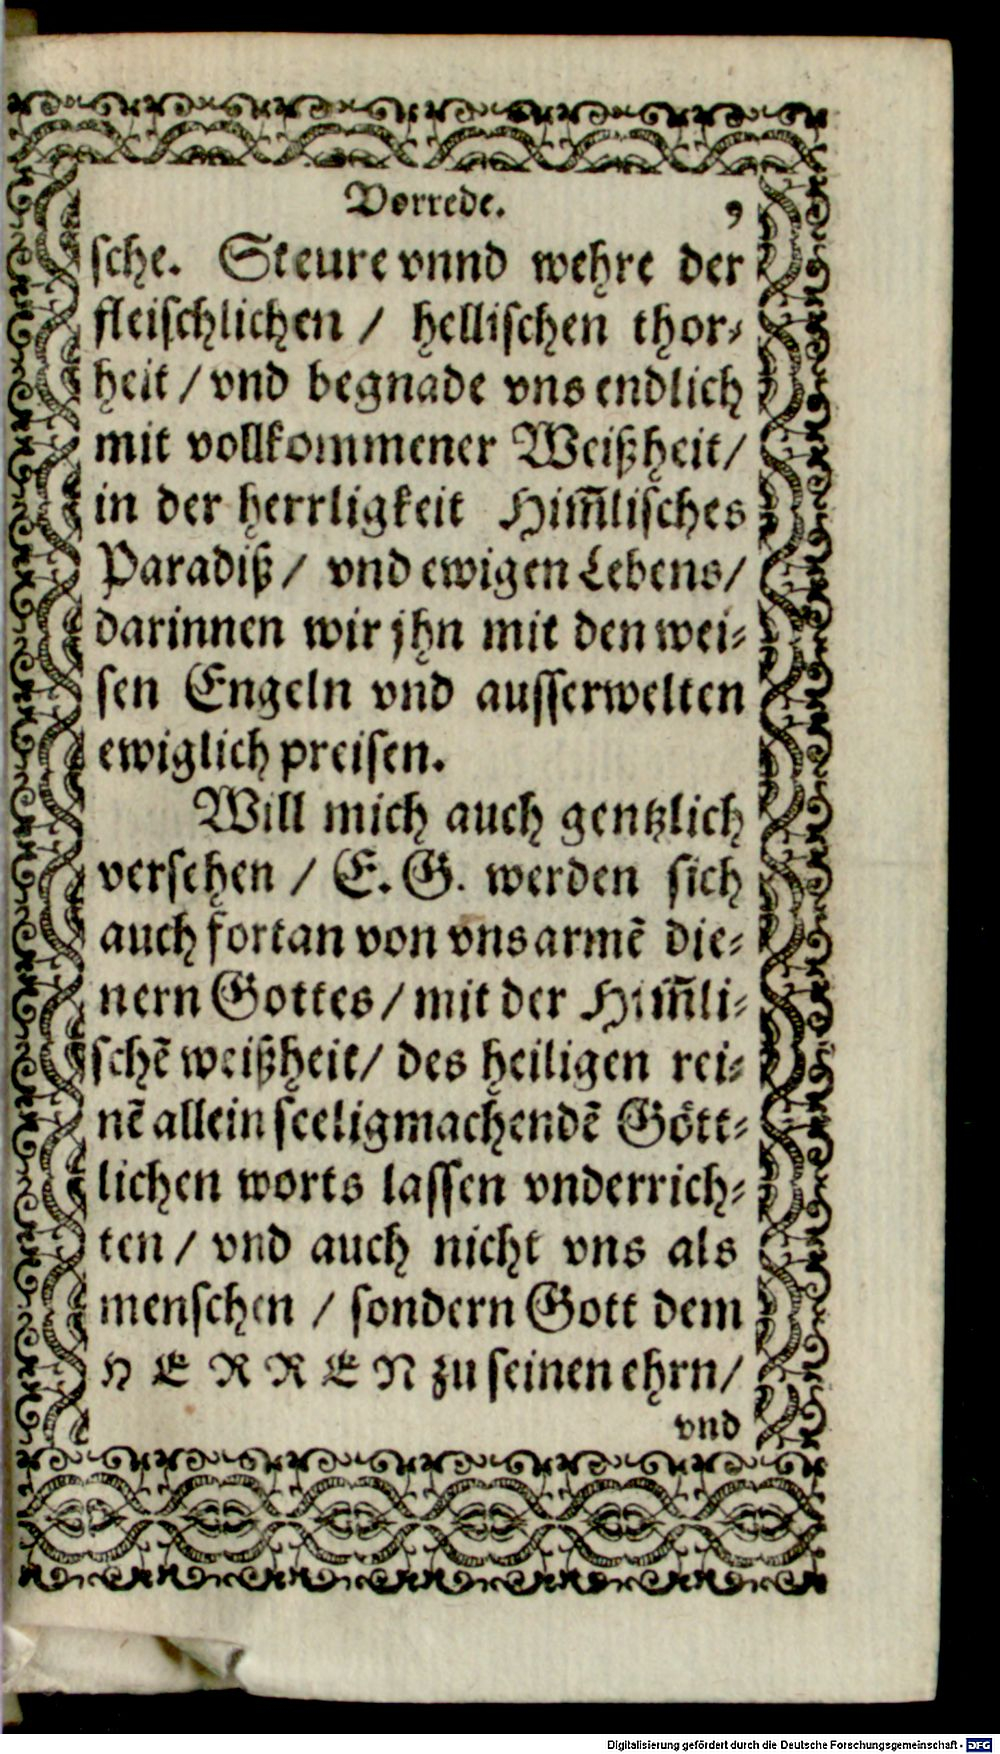 Vorrede. 9
sche. Steure vnnd wehre der
fleischlichen / hellischen thor⸗
heit / vnd begnade vns endlich
mit vollkommener Weißheit /
in der herrligkeit Him̃lisches
Paradiß / vnd ewigen Lebens /
darinnen wir jhn mit den wei⸗
sen Engeln vnd ausserwelten
ewiglich preisen.
Will mich auch gentzlich
versehen / E. G. werden sich
auch fortan von vns armẽ die⸗
nern Gottes / mit der Him̃li⸗
schẽ weißheit / des heiligen rei⸗
nẽ allein seeligmachendẽ Gött⸗
lichen worts lassen vnderrich⸗
ten / vnd auch nicht vns als
menschen / sondern Gott dem
HERREN zu seinen ehrn /
vnd
Digitalisierung gefördert durch die Deutsche Forschungsgemeinschaft - DFG